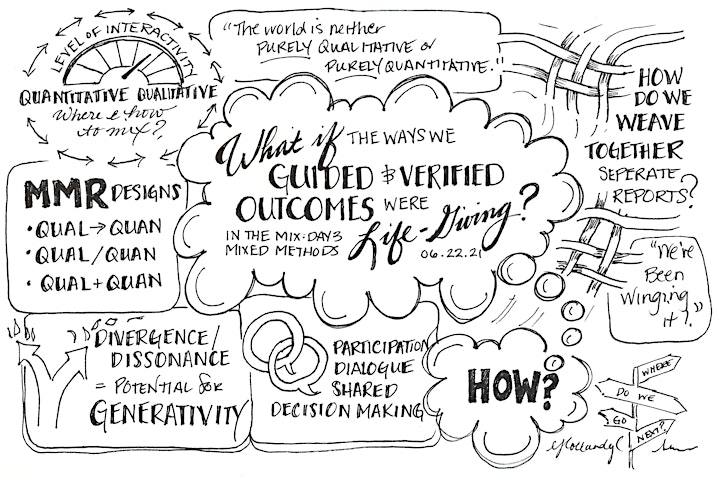 LEVEL OF INTERACTIVITY
QUANTITATIVE QUALITATIVE
Where & how
to mix?
"The world is neither
PURELY QUALITATIVE or
PURELY QUANTITATIVE."
HOW
DO WE
WEAVE
TOGETHER
SEPERATE
REPORTS?
What if THE WAYS WE
GUIDED & VERIFIED
OUTCOMES WERE
Life-Giving?
IN THE MIX: DAY 3
MIXED METHODS
06.22.21
MMR DESIGNS
• QUAL → QUAN
• QUAL / QUAN
• QUAL + QUAN
"We're
Been
Winging
it?."
DIVERGENCE/
DISSONANCE
= POTENTIAL for
GENERATIVITY
PARTICIPATION
DIALOGUE
SHARED
DECISION MAKING
HOW?
WHERE
DO WE
GO
NEXT?